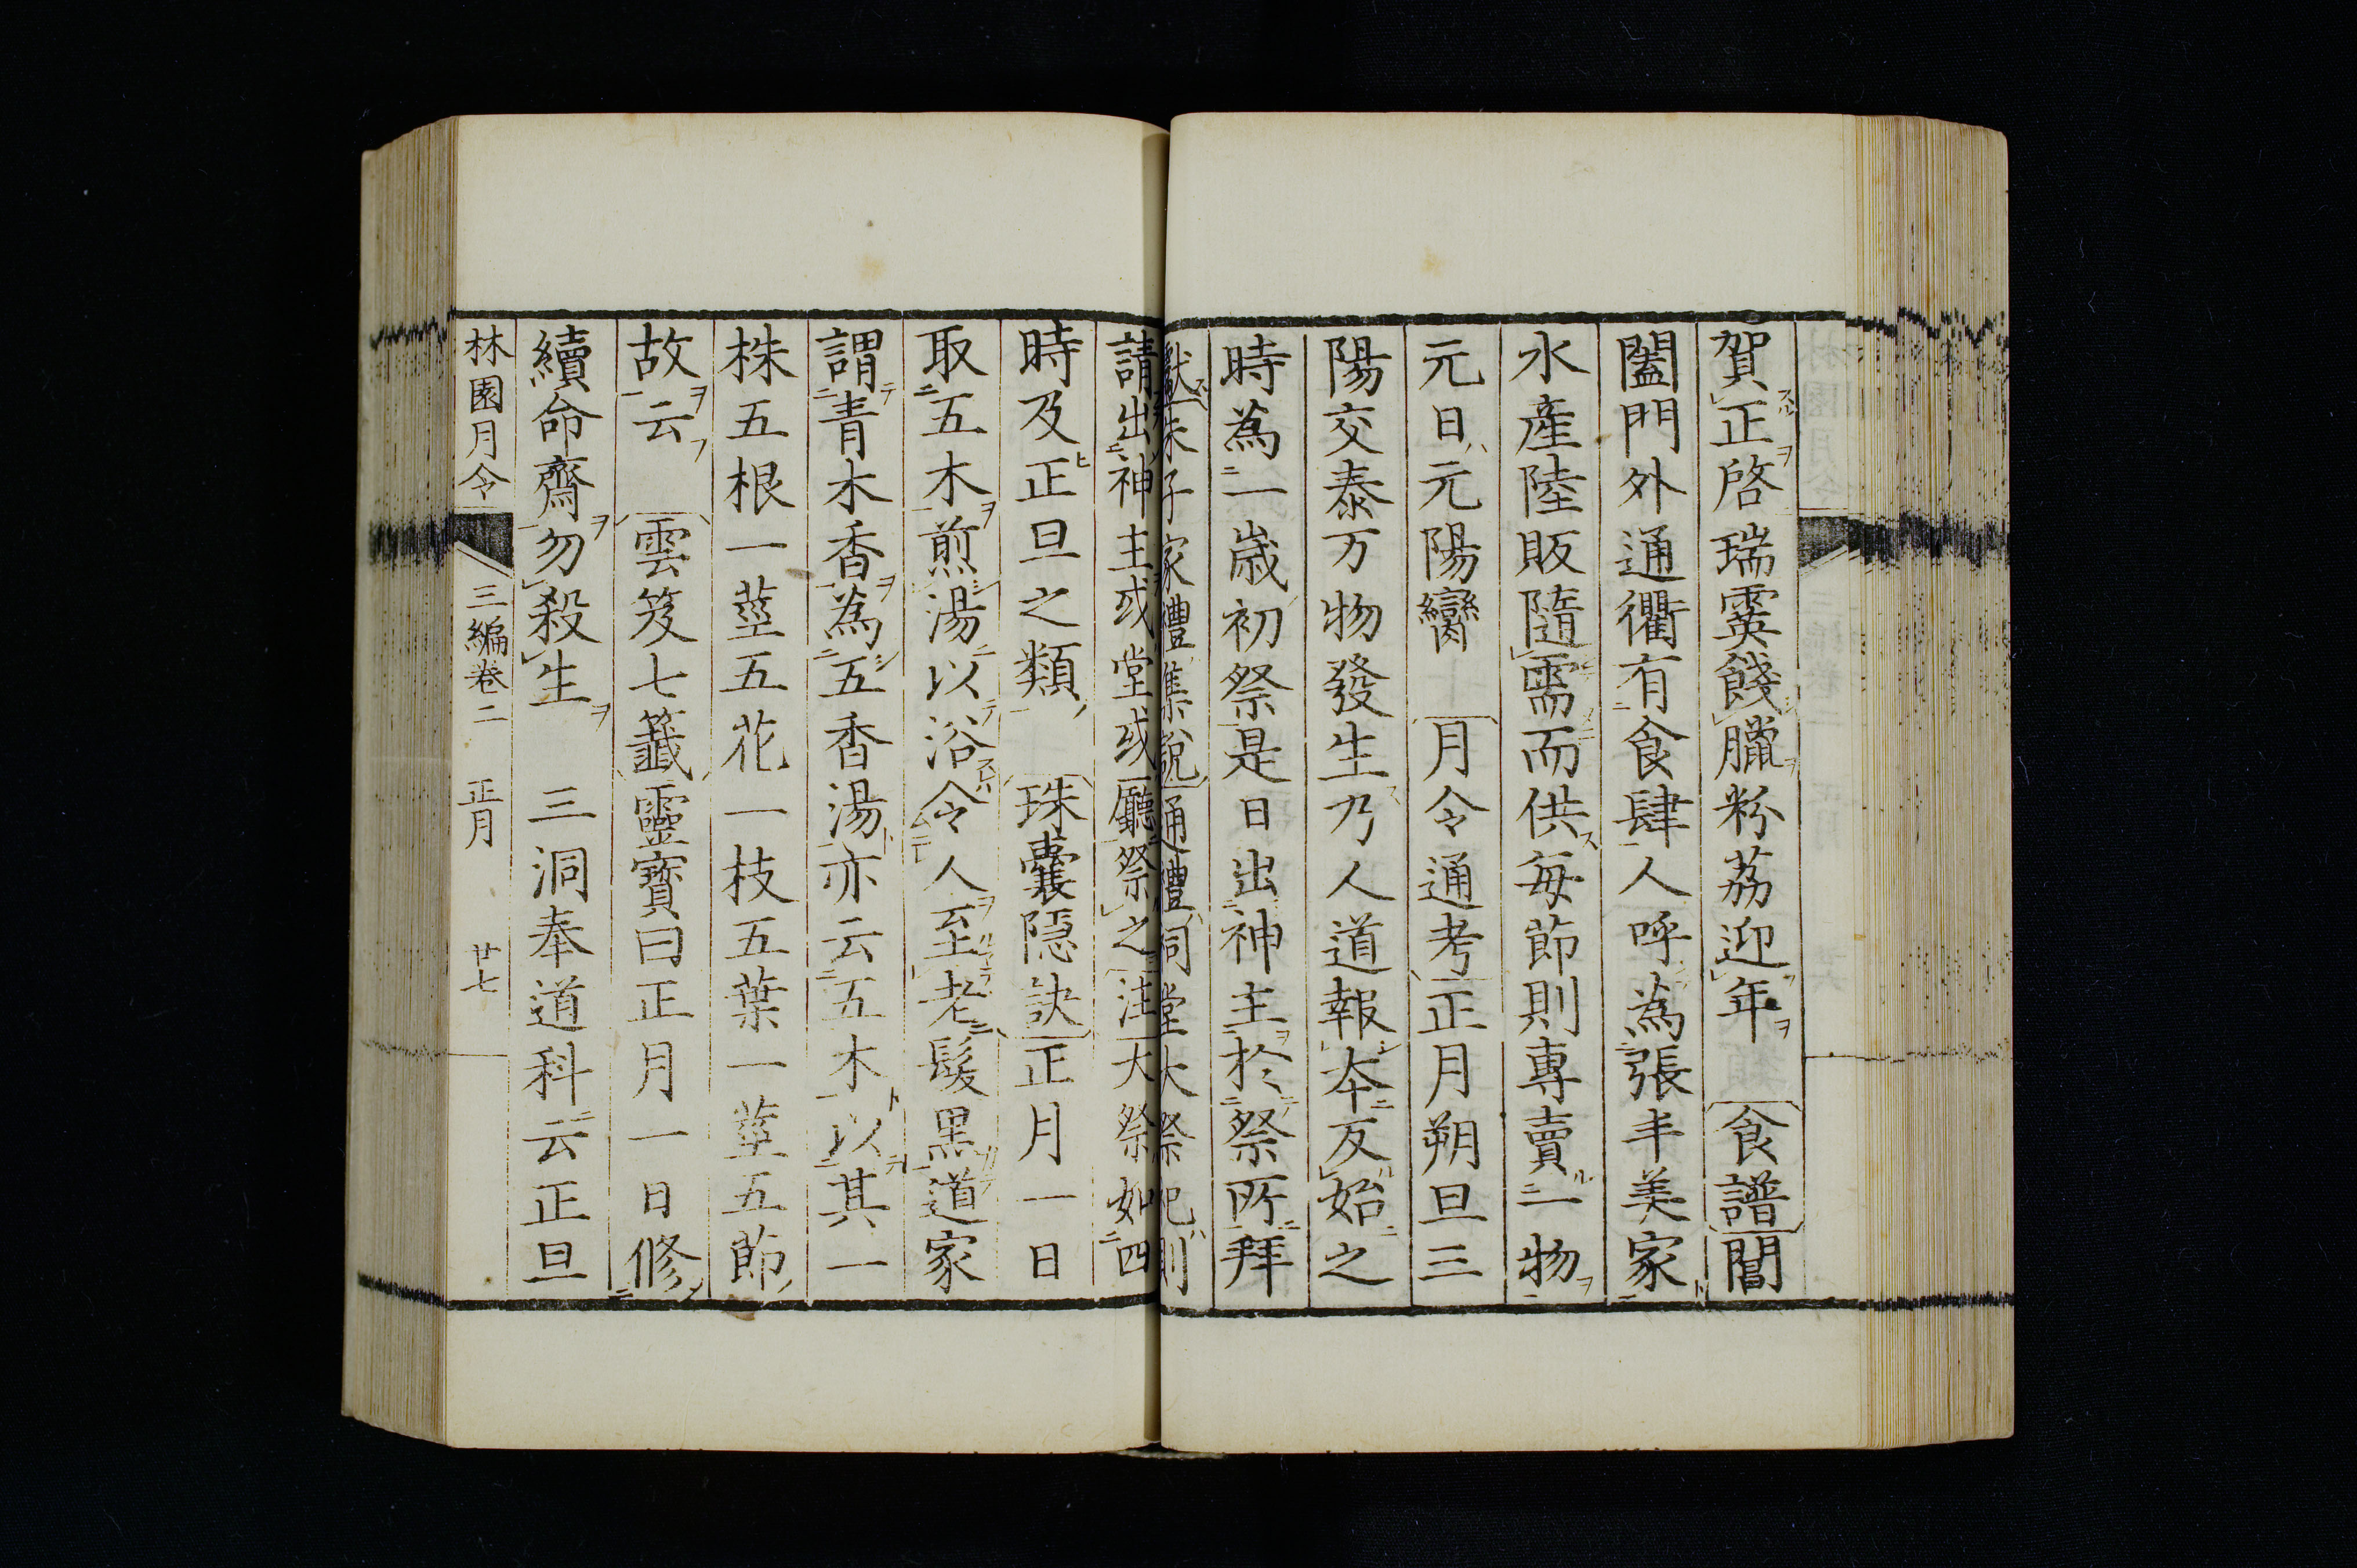 賀正啓瑞霙餞臘粉荔迎年　食譜閶
闔門外通衢有食肆人呼為張手美家
水產陸販隨需而供每節則專賣一物
元日元陽臠　月令通考正月朔旦三
陽交泰万物發生乃人道報夲反始之
時為一歲初祭是日出神主於祭所拜
獻朱子家禮集說通禮祠堂大祭祀則
請出神主或堂或廳祭之注大祭如四
時及正旦之類　珠囊隱訣正月一日
取五木煎湯以浴令人至老髮黑道家
謂青木香為五香湯亦云五木以其一
株五根一莖五花一枝五葉一莖五節
故云　雲笈七籤靈寶曰正月一日修
續命齋勿殺生　三洞奉道科云正旦
林園月令　三編卷二　正月　廿七